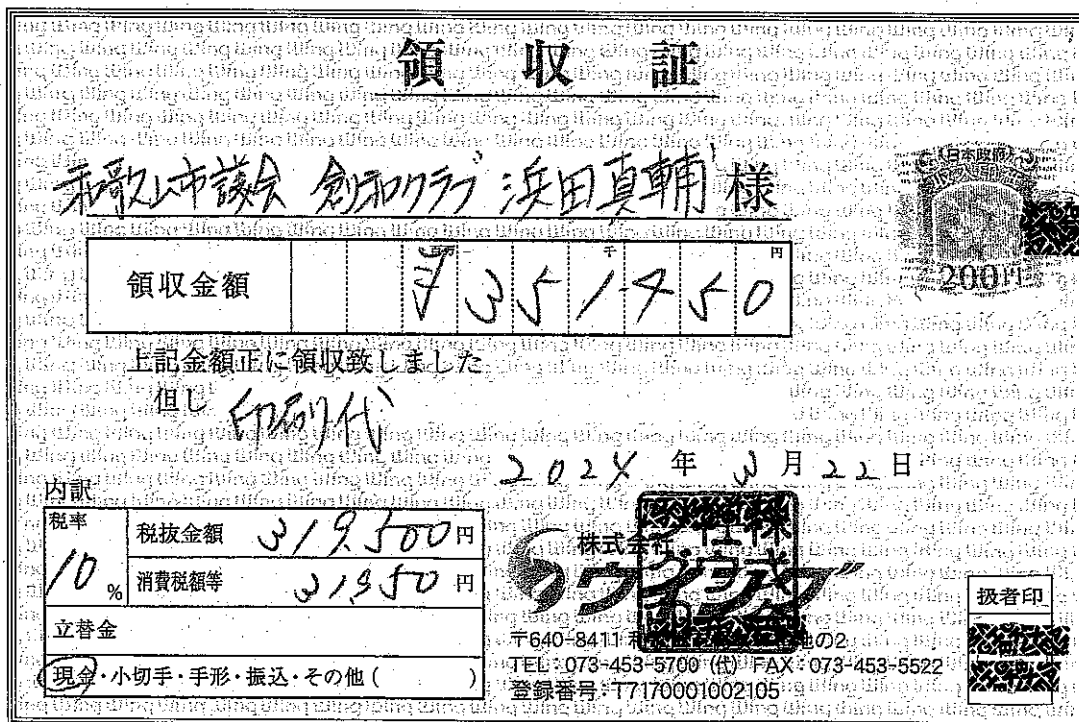 領収証
和歌山市議会 創和クラブ 浜田真輔 様
領収金額 百万 千 円
¥351450
上記金額正に領収致しました
但し 印刷代
2024年 3月22日
内訳
税率 10%
税抜金額 319,500円
消費税額等 31,950円
立替金
現金・小切手・手形・振込・その他( )
日本政府
200円
株式会社
ウイング
〒640-8411 和 の2
TEL:073-453-5700 (代) FAX:073-453-5522
登録番号:T7170001002105
扱者印